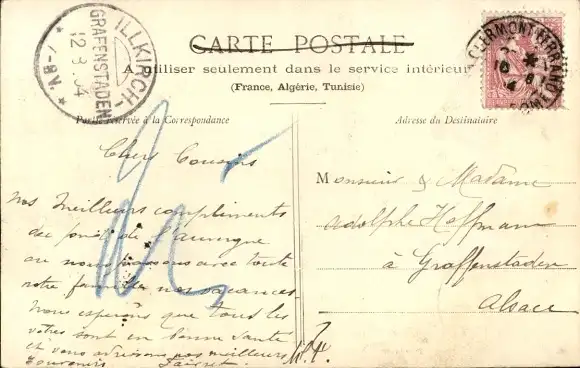 ILLKIRCH-
GRAFENSTADEN
12.8.04
* 7-8N. *
CARTE POSTALE
A utiliser seulement dans le service intérieur
(France, Algérie, Tunisie)
CLERMONT-FERRAND
Partie réservée à la Correspondance
Adresse du Destinataire
Chers Cousins
Nos meilleurs compliments
du fond de l'auvergne
ou nous passons avec toute
notre famille nos vacances
Nous espérons que tous les
vôtres sont en bonne santé
et vous adressons nos meilleurs
Souvenirs
Monsieur & Madame
Adolphe Hoffmann
à Graffenstaden
Alsace